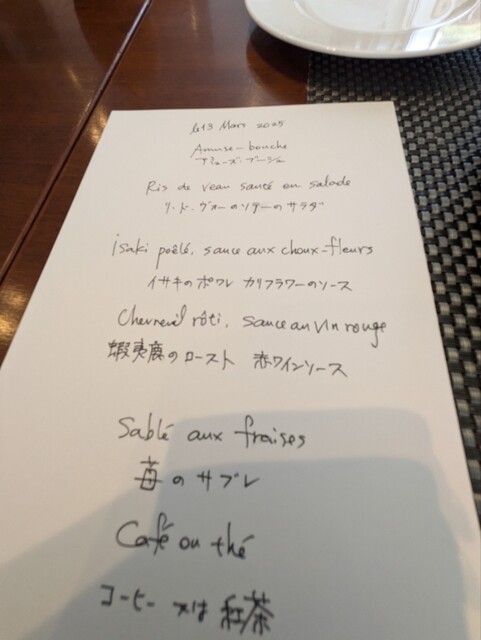 le 13 Mars 2025
Amuse-bouche
アミューズ・ブーシュ
Ris de veau sauté en salade
リ・ド・ヴォーのソテーのサラダ
isaki poêlé, sauce aux choux-fleurs
イサキのポワレ カリフラワーのソース
Chevreuil rôti, sauce au vin rouge
蝦夷鹿のロースト 赤ワインソース
Sablé aux fraises
苺のサブレ
Café ou thé
コーヒー 又は 紅茶